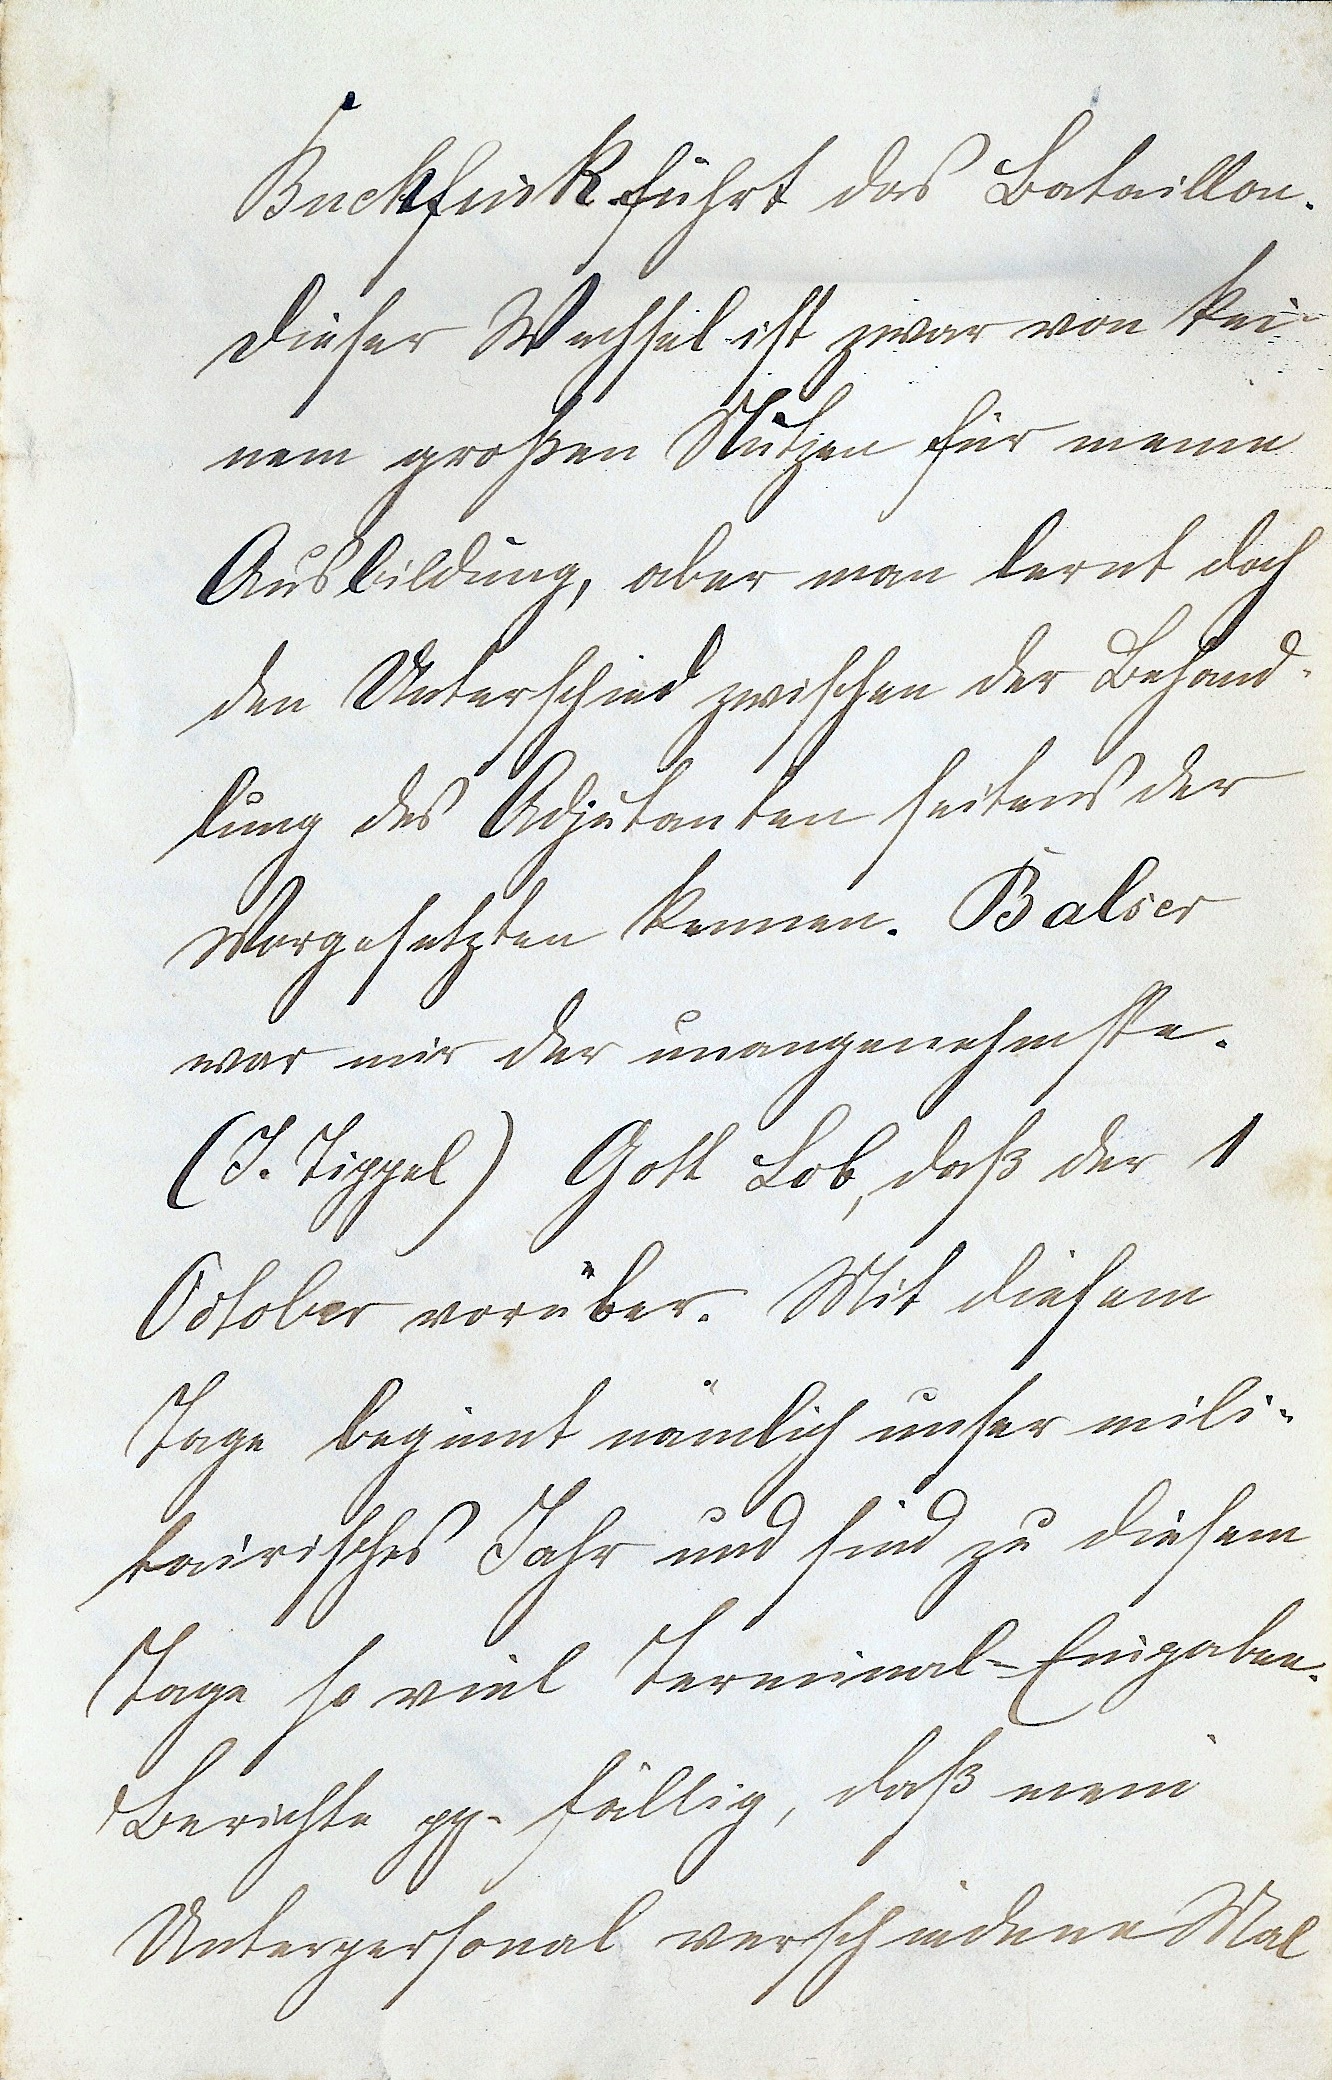 Buckfink führt das Bataillon.
Dieser Wechsel ist zwar von kei-
nem großen Nutzen für meine
Ausbildung, aber man lernt doch
den Unterschied zwischen der Behand-
lung des Adjutanten seitens der
Vorgesetzten kennen. Balser
war mir der unangenehmste.
(J. Tippel) Gott Lob, daß der 1
October vorüber. Mit diesem
Tage beginnt nämlich unser mili-
tairisches Jahr und sind zu diesem
Tage so viel Terminal-Eingaben.
Berichte pp. fällig, daß mein
Unterpersonal verschiedene Mal